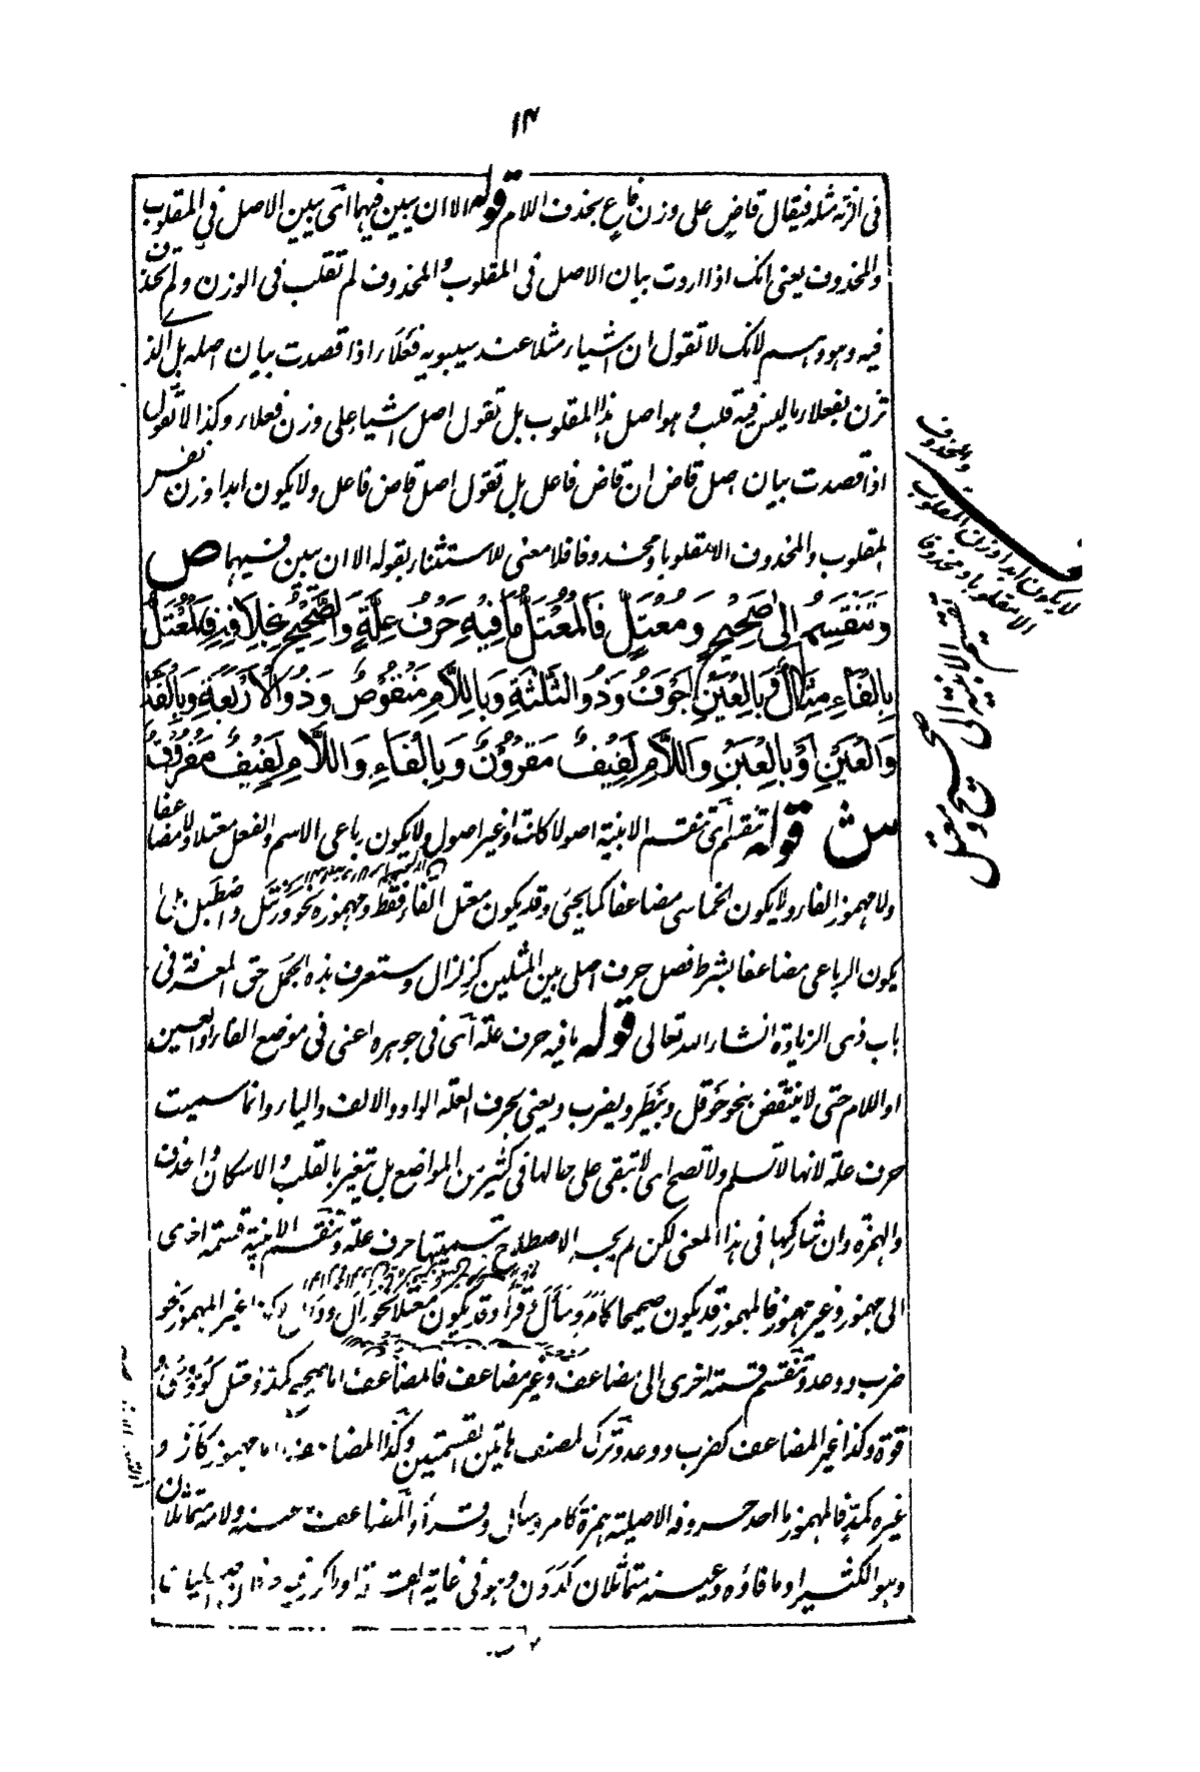 ١٤
فی افزته مثله فیقال قاضٍ علی وزن فاعٍ بحذف اللام قوله الا ان یبین فیهما ای یبین الاصل فی المقلوب
والمحذوف یعنی انک اذا اردت بیان الاصل فی المقلوب والمحذوف لم تقلب فی الوزن ولم تحذف
فیه وهو وهم لانک لا تقول ان اشیاء مثلا عند سیبویه فعلاء اذا قصدت بیان اصله بل الذی
تزن بفعلاء ما لیس فیه قلب وهو اصل هذا المقلوب بل تقول اصل اشیاء علی وزن فعلاء وکذا لا تقول
اذا قصدت بیان اصل قاض ان قاض فاعل بل تقول اصل قاض فاعل ولا یکون ابدا وزن نفس
المقلوب والمحذوف الا مقلوبا ومحذوفا فلا معنی للاستثناء بقوله الا ان یبین فیهما ص
وَتَنْقَسِمُ اِلٰی صَحِیْحٍ وَمُعْتَلٍّ فَالْمُعْتَلُّ مَا فِیْهِ حَرْفُ عِلَّةٍ وَالصَّحِیْحُ بِخِلَافِهٖ فَالْمُعْتَلُّ
بِالْفَاءِ مِثَالٌ وَبِالْعَیْنِ اَجْوَفُ وَذُو الثَّلٰثَةِ وَبِاللَّامِ مَنْقُوْصٌ وَذُو الْاَرْبَعَةِ وَبِالْفَاءِ
وَالْعَیْنِ اَوْ بِالْعَیْنِ وَاللَّامِ لَفِیْفٌ مَقْرُوْنٌ وَبِالْفَاءِ وَاللَّامِ لَفِیْفٌ مَفْرُوْقٌ
ش قوله تنقسم ای تنقسم الابنیة اصولا کانت او غیر اصول ولا یکون رباعی الاسم والفعل معتلا ولا مضاعفا
ولا مهموز الفاء ولا یکون الخماسی مضاعفا کما یجئ وقد یکون معتل الفاء فقط ومهموزه نحو ورنتل واصطبل بلی
یکون الرباعی مضاعفا بشرط فصل حرف اصلی بین المثلین کزلزال وستعرف هذه الجمل حق المعرفة فی
باب ذی الزیادة انشاء الله تعالی قوله ما فیه حرف علة ای فی جوهره اعنی فی موضع الفاء او العین
او اللام حتی لا ینتقض بنحو حوقل وبیطر ویضرب ویعنی بحرف العلة الواو والالف والیاء وانما سمیت
حرف علة لانها لا تسلم ولا تصح ای لا تبقی علی حالها فی کثیر من المواضع بل تتغیر بالقلب والاسکان والحذف
والهمزة وان شارکتها فی هذا المعنی لکن لم یجر الاصطلاح بتسمیتها حرف علة وتنقسم الابنیة قسمة اخری
الی مهموز وغیر مهموز فالمهموز قد یکون صحیحا کامر وسأل وقرأ وقد یکون معتلا نحو آل ووأل وکذا غیر المهموز نحو
ضرب ووعد وتنقسم قسمة اخری الی مضاعف وغیر مضاعف فالمضاعف اما صحیح کمد او معتل کود وحی و
قوة وکذا غیر المضاعف کضرب ووعد وترک المصنف هاتین القسمتین وکذا المضاعف اما مهموز کاز و
غیره کمد فالمهموز ما احد حروفه الاصلیة همزة کامر وسأل وقرأ والمضاعف ما عینه ولامه متماثلان
وهو الکثیر او ما فاؤه وعینه متماثلان کددن وهو فی غایة القلة
والمحذوف
لا یکون ابدا وزن المقلوب
الا مقلوبا ومحذوفا
تقسیم الابنیة الی صحیح ومعتل